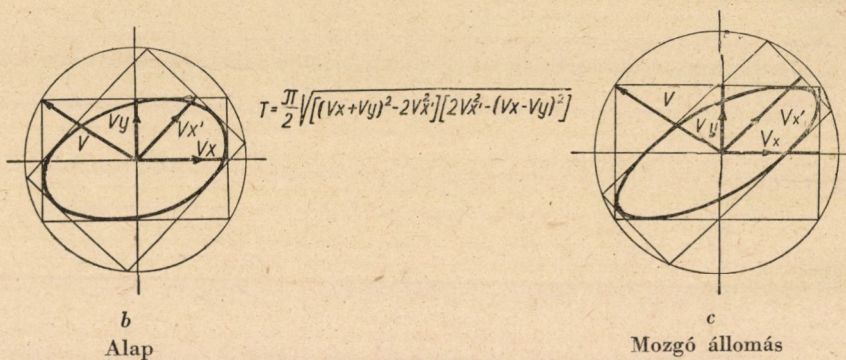 Vy
Vx'
V
Vx
T = π/2 √[(Vx+Vy)²-2Vx'²][2Vx'²-(Vx-Vy)²]
V
Vy
Vx'
Vx
b
Alap
c
Mozgó állomás